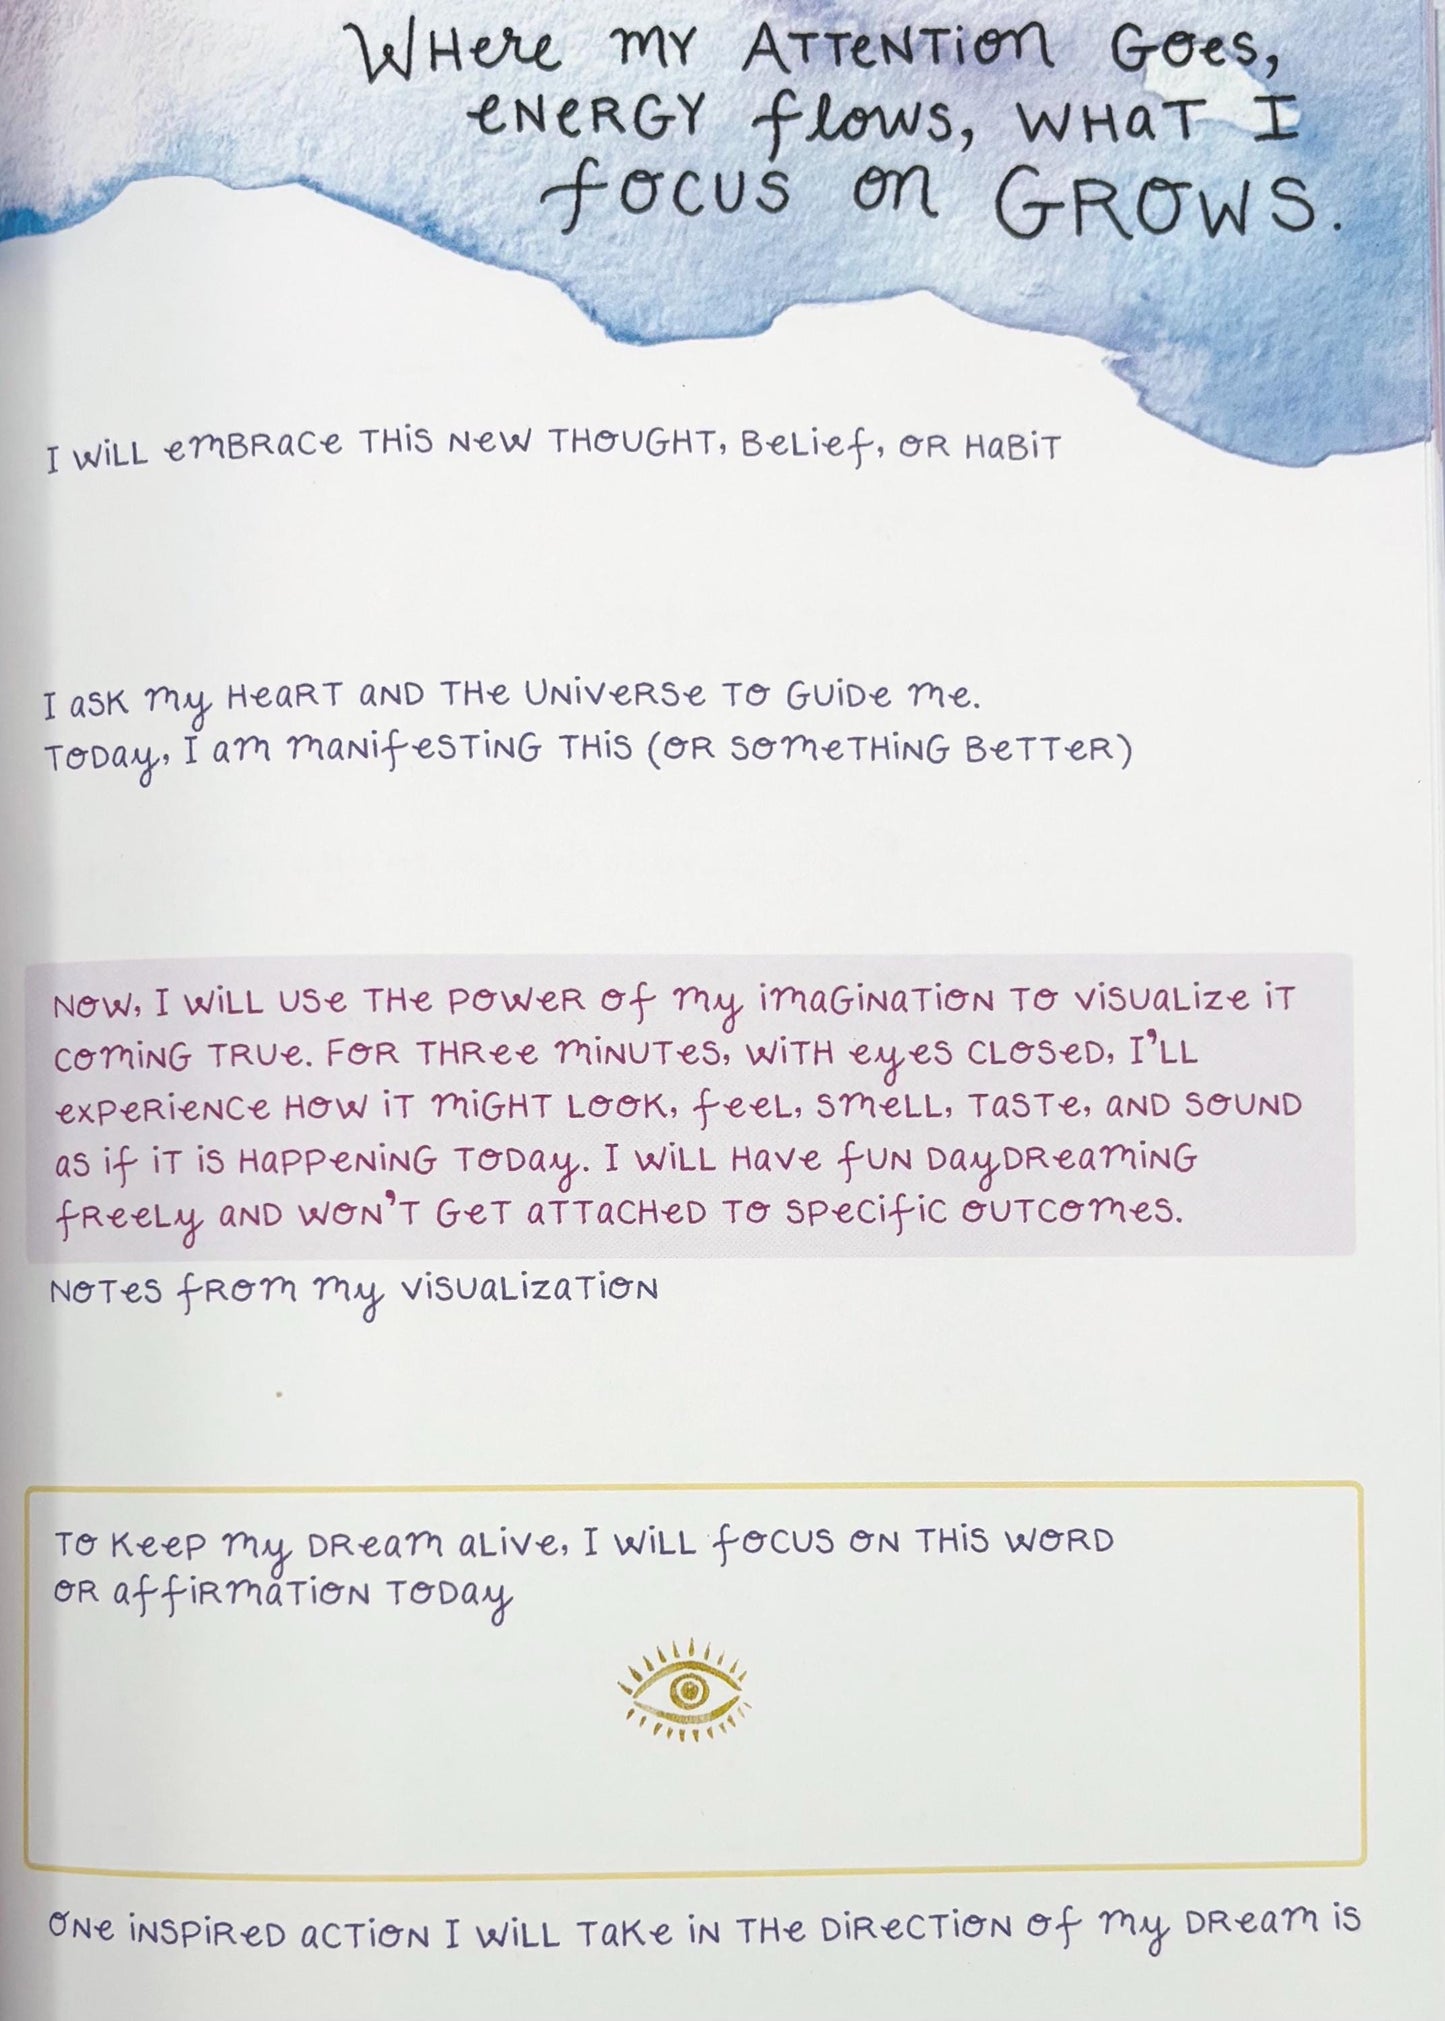 Where my Attention Goes,
energy flows, what I
focus on Grows.
I will embrace this new thought, belief, or habit
I ask my heart and the universe to guide me.
Today, I am manifesting this (or something better)
Now, I will use the power of my imagination to visualize it
coming true. For three minutes, with eyes closed, I'll
experience how it might look, feel, smell, taste, and sound
as if it is happening today. I will have fun daydreaming
freely and won't get attached to specific outcomes.
Notes from my visualization
To keep my dream alive, I will focus on this word
or affirmation today
One inspired action I will take in the direction of my dream is